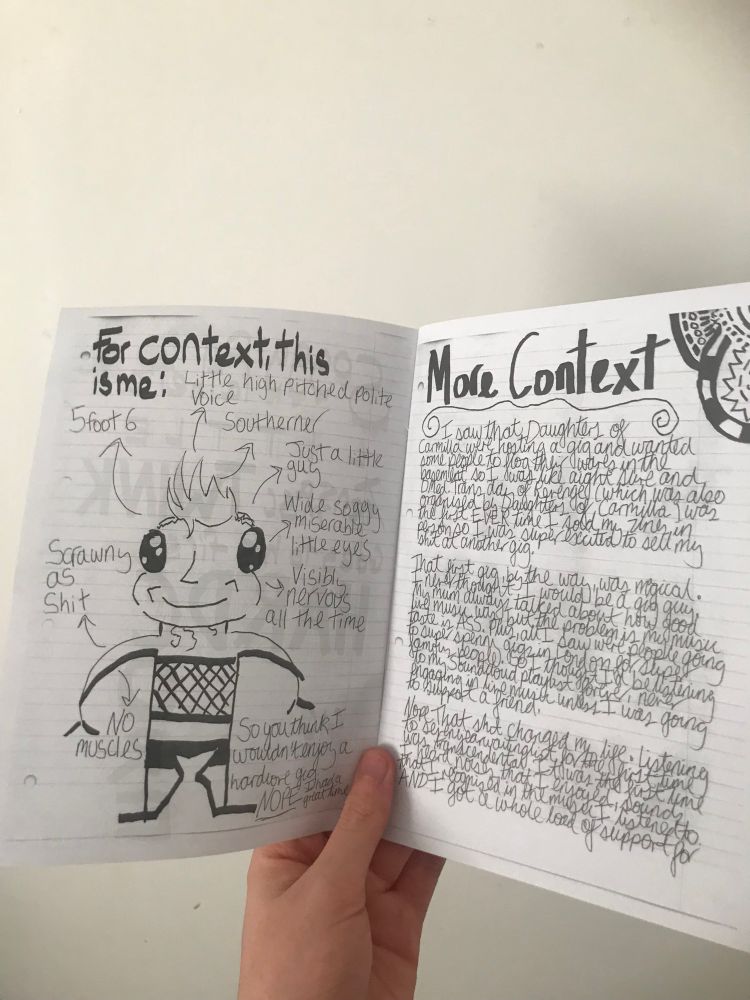 For context, this
is me:
Little high pitched polite
voice
5 foot 6
Southerner
Just a little
guy
Wide soggy
miserable
little eyes
Scrawny
as
shit
Visibly
nervous
all the time
NO
muscles
So you think I
wouldn't enjoy a
hardcore gig
NOPE I had a
great time
More Context
I saw that Daughters of
Carmilla were hosting a gig and wanted
some people to flog their wares in the
basement so I was like aight slive and
did Trans day of Revenge (which was also
organised by Daughters of Carmilla) was
the first EVER time I sold my zines in
person so I was super excited to sell my
shit at another gig.
That first gig, by the way, was magical.
I never thought I would be a gig guy.
My mum always talked about how good
live music was but the problem is my music
taste is ASS. Plus, all I saw were people going
to super spenny gigs in London for super
famous people. So I thought I'd be listening
to my Soundcloud playlist forever, never
engaging in live music unless I was going
to support a friend.
Nope. That shit changed my life. Listening
to for the first time
was transcendental. It was the first time
I heard noises that I enjoyed, sounds
that I recognised in the music I listened to
AND I got a whole load of support for